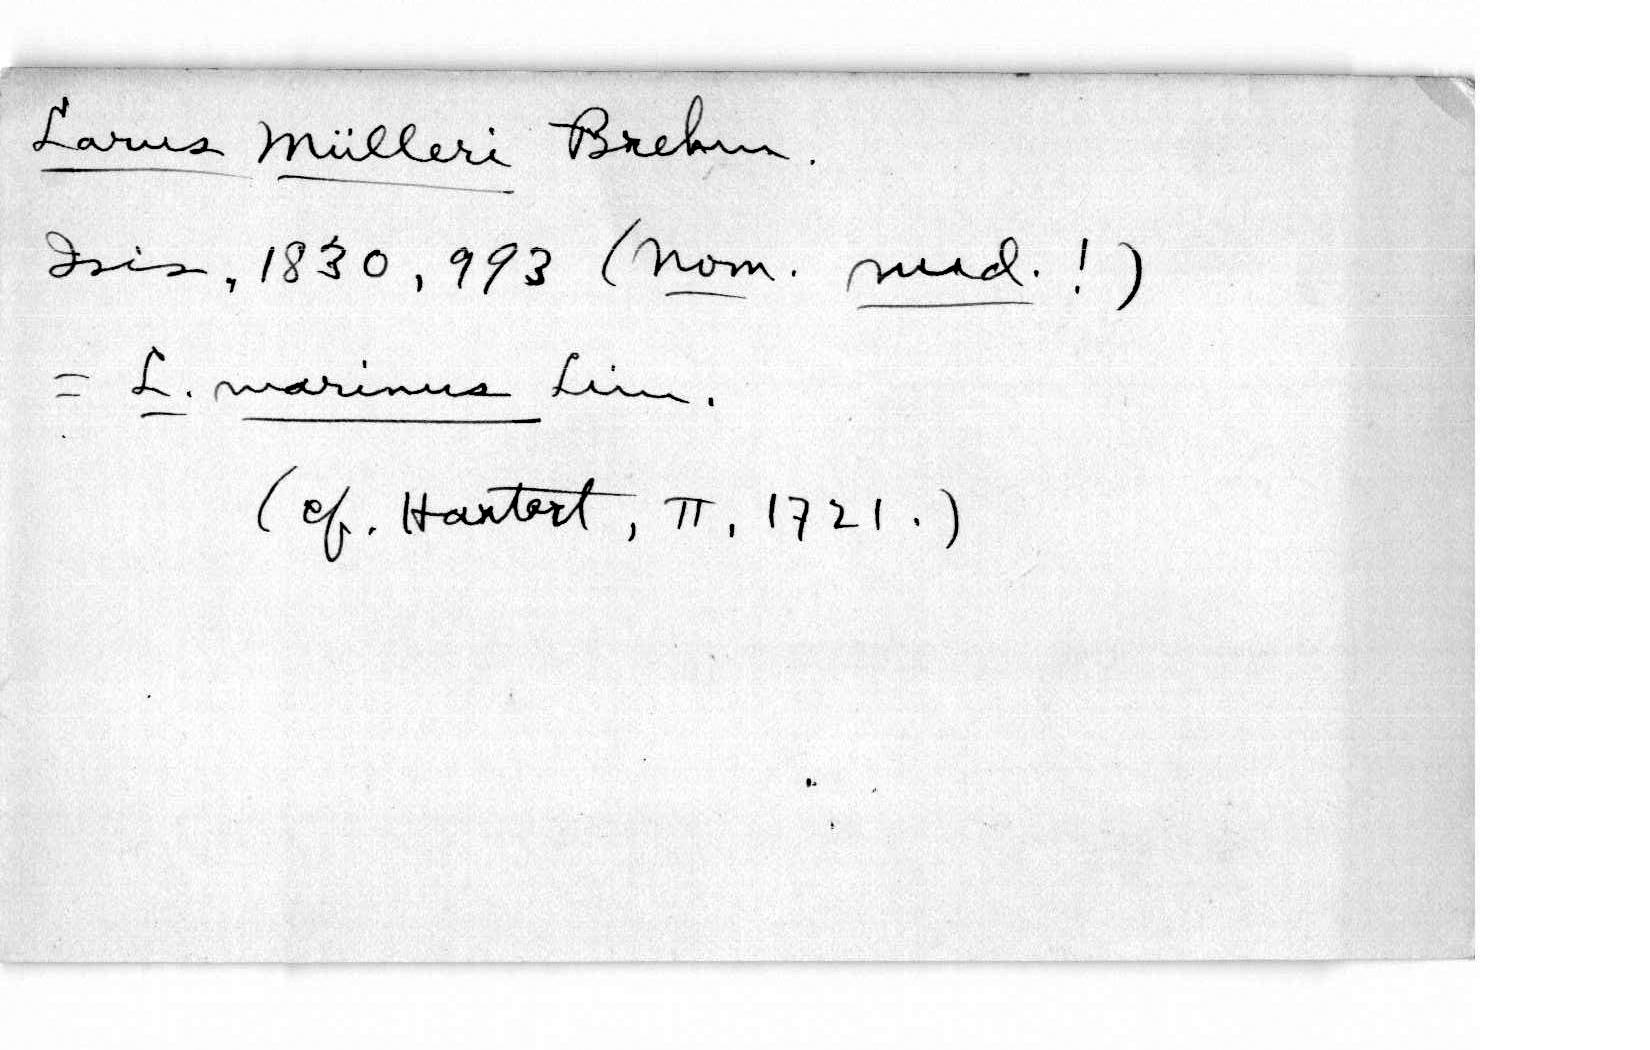 Larus Mülleri Brehm.
Isis, 1830, 993 (Nom. nud.!)
= L. marinus Linn.
(cf. Hartert, II, 1721.)